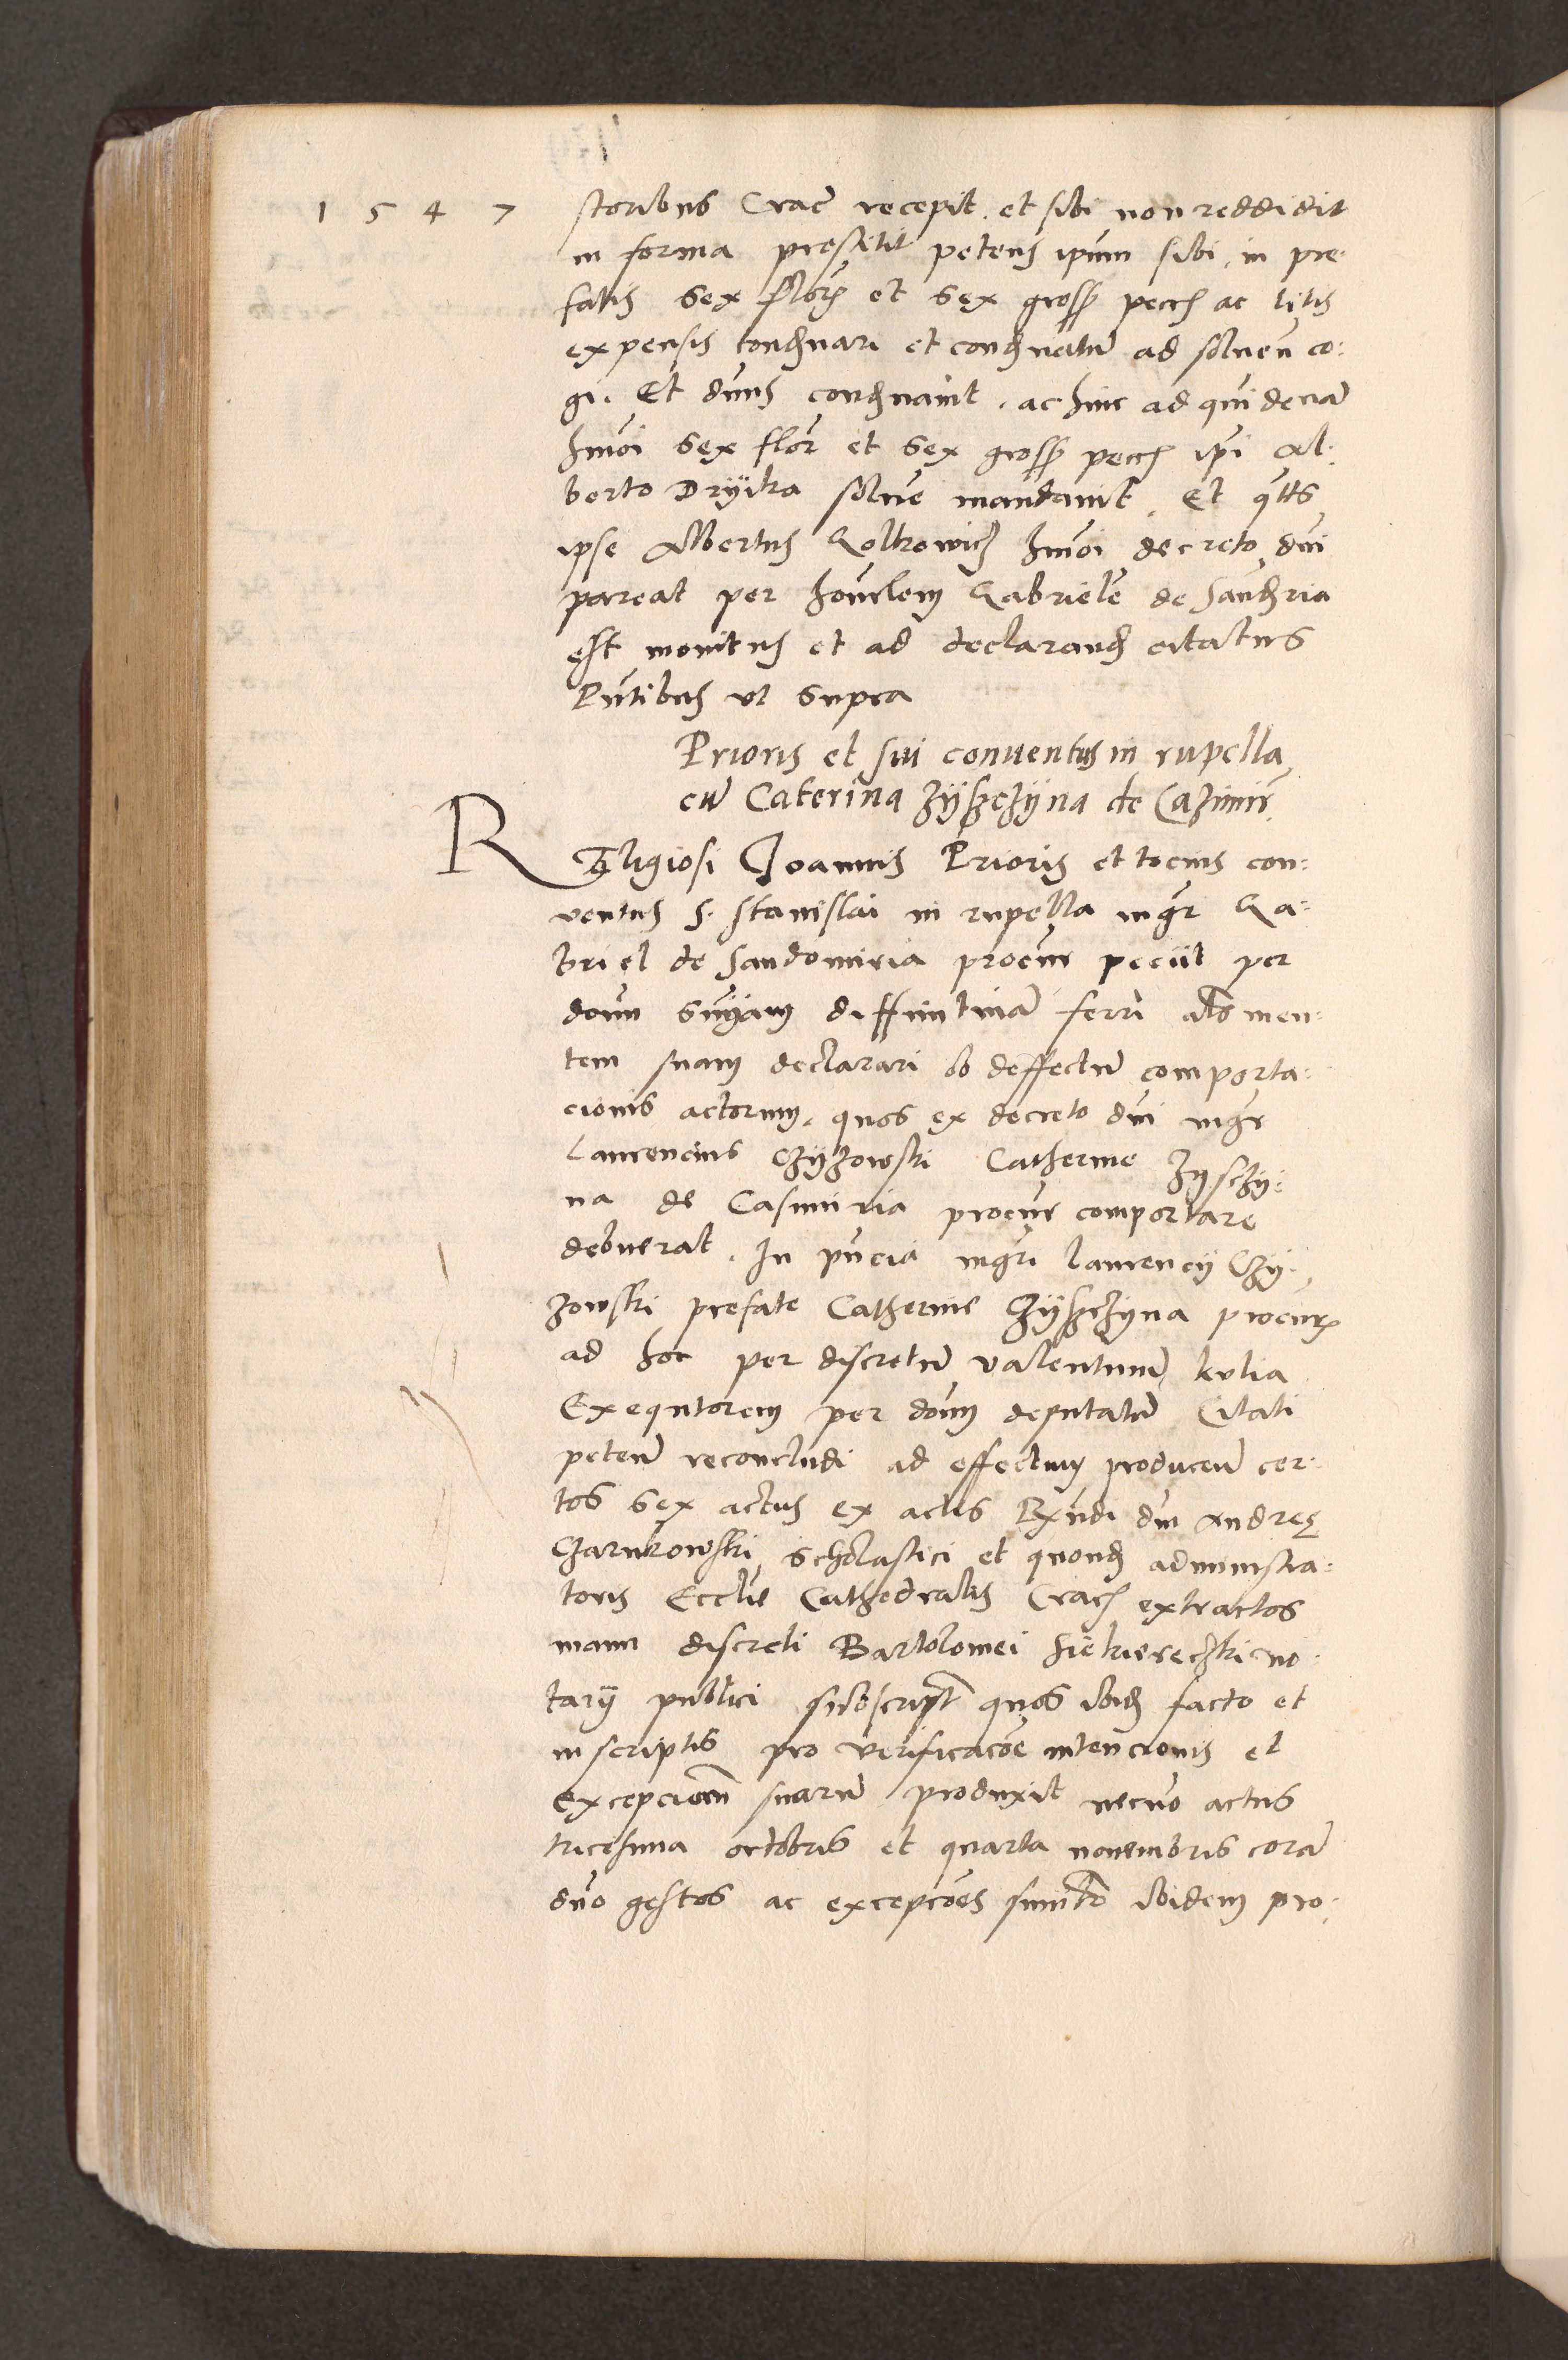 1 5 4 7
storibus Crac̄ recepit. et sibi non reddidit
in forma prestitit petens ipsum sibi, in pre-
fatis sex floren̄ et sex gross pecc ac litis
expensis condemnari et condemnatū ad soluen̄ co-
gi. Et dnus condemnavit. ac hinc ad quidenā
hmōi sex flor̄ et sex gross pecc ipi Al-
berto Dryika solue mandavit. Et
ipse Albertus hmōi decreto dni
pareat per honrlem Gabrielē de Sandria
est monitus et ad declarand citatus
Pntibus ut supra
Prioris et sui conventus in rupella
cū Caterina Zÿszczÿna de Cazimir̄
Religiosi Joannis Prioris et tocius con-
ventus S. Stanislai in rupella mgr̄ Ga-
briel de Sandomiria procur̄ peciit per
dnum snīam diffinitivā ferri als men-
tem suam declarari ob deffectū comporta-
cionis actorum, quos ex decreto dni mgr̄
Laurencius Czÿzowski Catherine Zyschy-
na de Casimiria procur̄ comportare
debuerat. In pn̄cia mgr̄i Laurencÿ Czÿ-
zowski prefate Catherine Czÿszczyna procur̄
ad hoc per discretū Valentinum
Exequtorem per dnum deputatū Citati
peten̄ reconcludi ad effectum producen̄ cer-
tos sex actus ex actis Rxndi dni Andreę
Czarnkowski scholastici et quond administra-
toris Ecclie Cathedralis Crac extractos
manu discreti Bartolomei no-
tarÿ publici subscript quos ibid facto et
in scriptis pro verificacōe intencionis et
excepcionū suarū produxit necno actus
tricesima octobris et quarta novembris corā
dno gestos ac excepcōes ibidem pro-